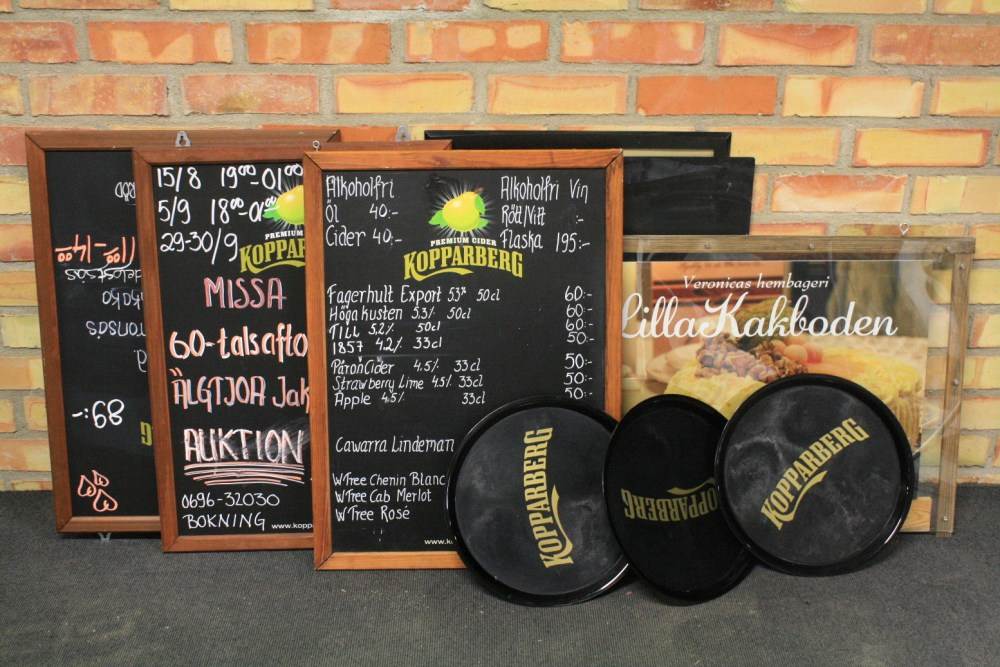 89:-
11⁰⁰-14⁰⁰
15/8 19⁰⁰-01⁰⁰
5/9 18⁰⁰-01⁰⁰
29-30/9
KOPPARB
MISSA
60-talsafto
ÄLGTJOR Jak
AUKTION
0696-32030
BOKNING
www.kopp
Alkoholfri
Öl 40:-
Cider 40:-
Alkoholfri Vin
Rött/Vitt :-
Flaska 195:-
PREMIUM CIDER
KOPPARBERG
Fagerhult Export 5,3% 50cl 60:-
Höga kusten 5.3% 50cl 60:-
TILL 5.2% 50cl 60:-
1857 4.2% 33cl 50:-
PäronCider 4.5% 33cl 50:-
Strawberry Lime 4.5% 33cl 50:-
Äpple 4.5% 33cl 50:-
Cawarra Lindeman
WTree Chenin Blanc
WTree Cab Merlot
WTree Rosé
www.k
Veronicas hembageri
Lilla Kakboden
KOPPARBERG
KOPPARBERG
KOPPARBERG